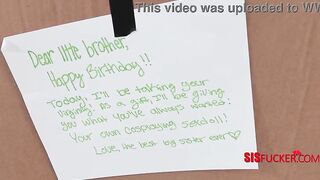 This video was uploaded to W
Dear little brother,
Happy Birthday!!
Today, I'll be taking your
virginity! As a gift, I'll be giving
you what you've always wanted:
Your own cosplaying sexdoll!
Love, the best big sister ever♡
SISFUCKER.COM